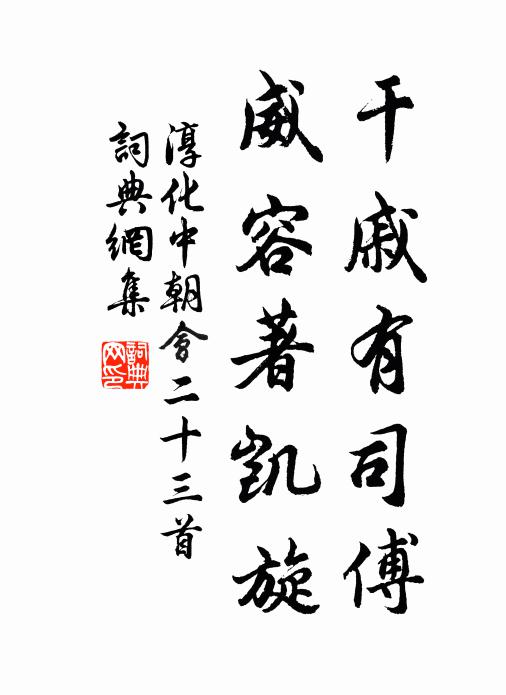 干戚有司傅
威容著凱旋
淳化中朝會二十三首
詞典網集
詞典網印